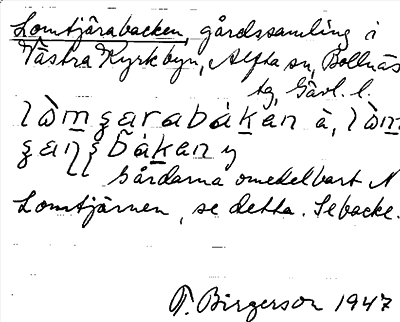 Lomtjärabacken, gårdssamling i
Västra Kyrkbyn, Alfta sn, Bollnäs
tg, Gävl. l.
lò̀m̱ʒarabáḵan à, lò̀m̱
ʒaɳʂ b̃áḵan y
Gårdarna omedelbart N
Lomtjärnen, se detta. Se backe.
T. Birgerson 1947